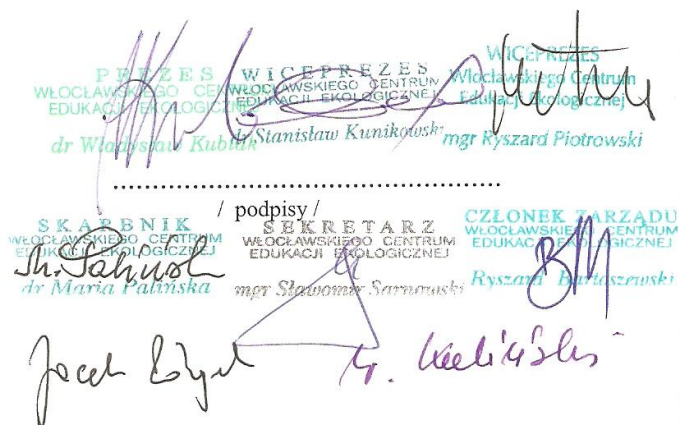 PREZES
WŁOCŁAWSKIEGO CENTRUM
EDUKACJI EKOLOGICZNEJ
dr Władysław Kubiak
WICEPREZES
WŁOCŁAWSKIEGO CENTRUM
EDUKACJI EKOLOGICZNEJ
dr Stanisław Kunikowski
WICEPREZES
Włocławskiego Centrum
Edukacji Ekologicznej
mgr Ryszard Piotrowski
/ podpisy /
SKARBNIK
WŁOCŁAWSKIEGO CENTRUM
EDUKACJI EKOLOGICZNEJ
dr Maria Palińska
SEKRETARZ
WŁOCŁAWSKIEGO CENTRUM
EDUKACJI EKOLOGICZNEJ
mgr Sławomir Sarnowski
CZŁONEK ZARZĄDU
WŁOCŁAWSKIEGO CENTRUM
EDUKACJI EKOLOGICZNEJ
Ryszard Bartoszewski
Jacek